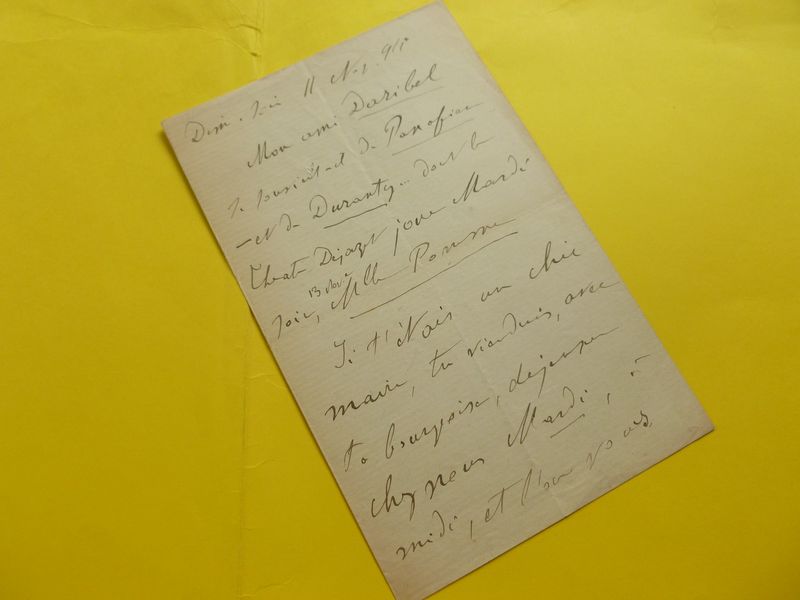 Dim. soir 11 Nov. 94
Mon ami Daribel
Te souvient-il de
- et de Duranty... dont le
Théâtre Déjazet joue Mardi
13 Nov
soir, Mlle Pomme
Si t'étais un chic
maire, tu viendrais, avec
ta bourgeoise, déjeuner
chez nous Mardi, à
midi, et l'on